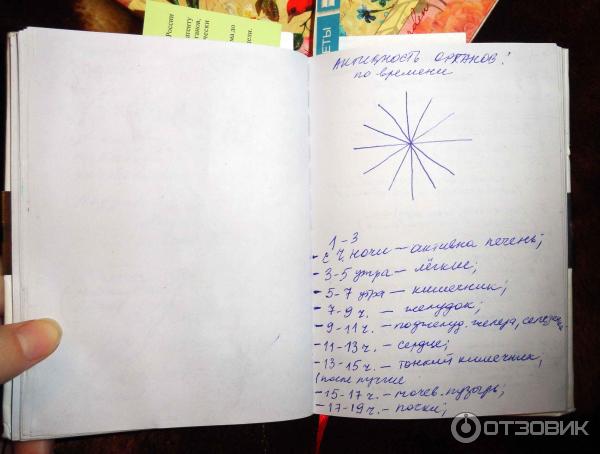 России
патенту
ческий
ома до
дели.
ЕТЫ
АКТИВНОСТЬ ОРГАНОВ!
по времени
1-3
- с ч. ночи — активна печень;
- 3-5 утра — лёгкие;
- 5-7 утра — кишечник;
- 7-9 ч. — желудок;
- 9-11 ч. — поджелуд. железа, селезёнка
- 11-13 ч. — сердце;
- 13-15 ч. — тонкий кишечник,
(после лучше
- 15-17 ч. — мочев. пузырь;
- 17-19 ч. — почки;
ОТЗОВИК